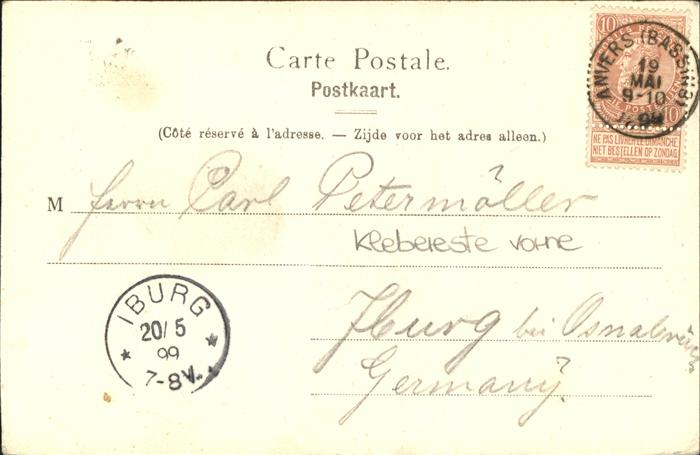 Carte Postale.
Postkaart.
(Côté réservé à l'adresse. — Zijde voor het adres alleen.)
10 10
POSTES
ANVERS (BASSINS)
19
MAI
9-10
NE PAS LIVRER LE DIMANCHE
NIET BESTELLEN OP ZONDAG
M Herrn Carl Petermöller
Klebereste vorne
IBURG
20/5
99
7-8V.
Iburg bei Osnabrück
Germany.